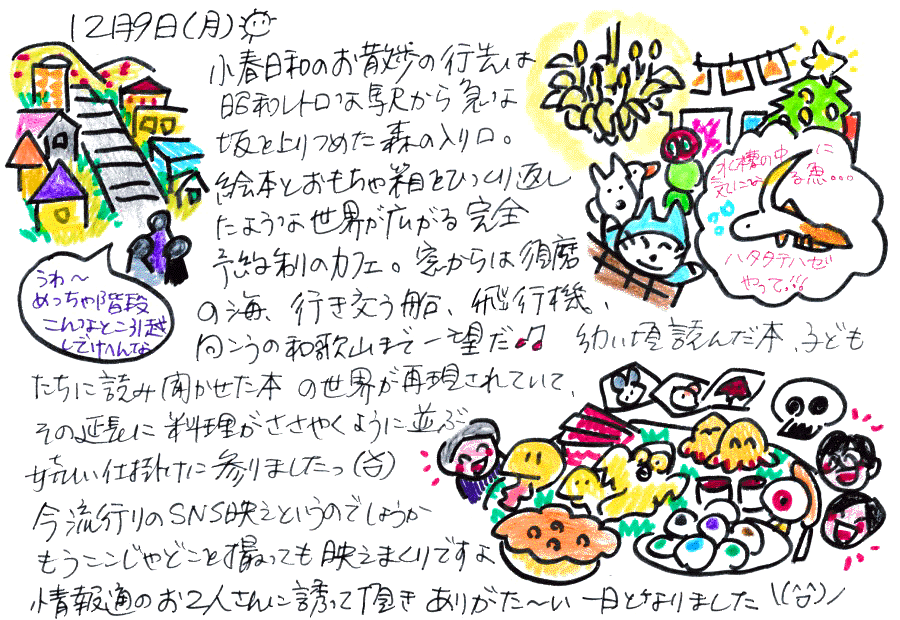 12月9日(月)
小春日和のお散歩の行先は
昭和レトロな駅から急な
坂を上りつめた森の入り口。
絵本とおもちゃ箱をひっくり返し
たような世界が広がる完全
予約制のカフェ。窓からは須磨
の海、行き交う船、飛行機、
向こうの和歌山まで一望だ♪♪ 幼い頃読んだ本、子ども
たちに読み聞かせた本 の世界が再現されていて、
その延長に料理がささやくように並ぶ
嬉しい仕掛けに参りましたっ
今流行りのSNS映えというのでしょうか
もうここじゃどこを撮っても映えまくりですよ
情報通のお2人さんに誘って頂き ありがた〜い 一日となりました \(^o^)/
うわ〜
めっちゃ階段
こんなとこ引越
しでけへんな
水槽の中に
気になる魚…
ハタタテハゼ
やって!!!